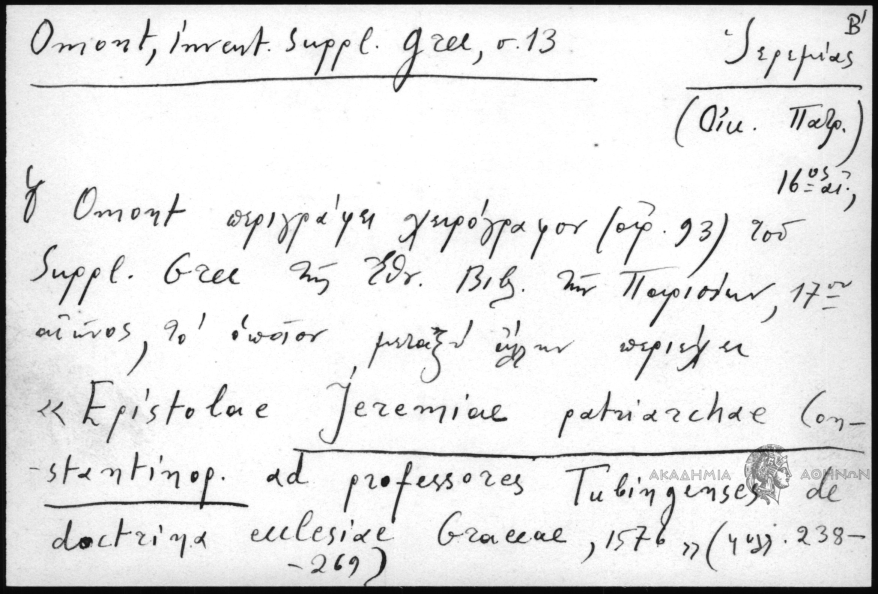 Omont, invent. Suppl. Grec, σ. 13
Ἱερεμίας Β'
(Οἰκ. Πατρ.)
16ος αἰ.,
Ὁ Omont περιγράφει χειρόγραφον (ἀρ. 93) τοῦ
Suppl. Grec τῆς Ἐθν. Βιβ. τῶν Παρισίων, 17ου
αἰῶνος, τὸ ὁποῖον μεταξὺ ἄλλων περιέχει
« Epistolae Jeremiae patriarchae Con-
-stantinop. ad professores Tubingenses de
doctrina ecclesiae Graecae, 1576 » (φύλλ. 238-
-269)
ΑΚΑΔΗΜΙΑ ΑΘΗΝΩΝ